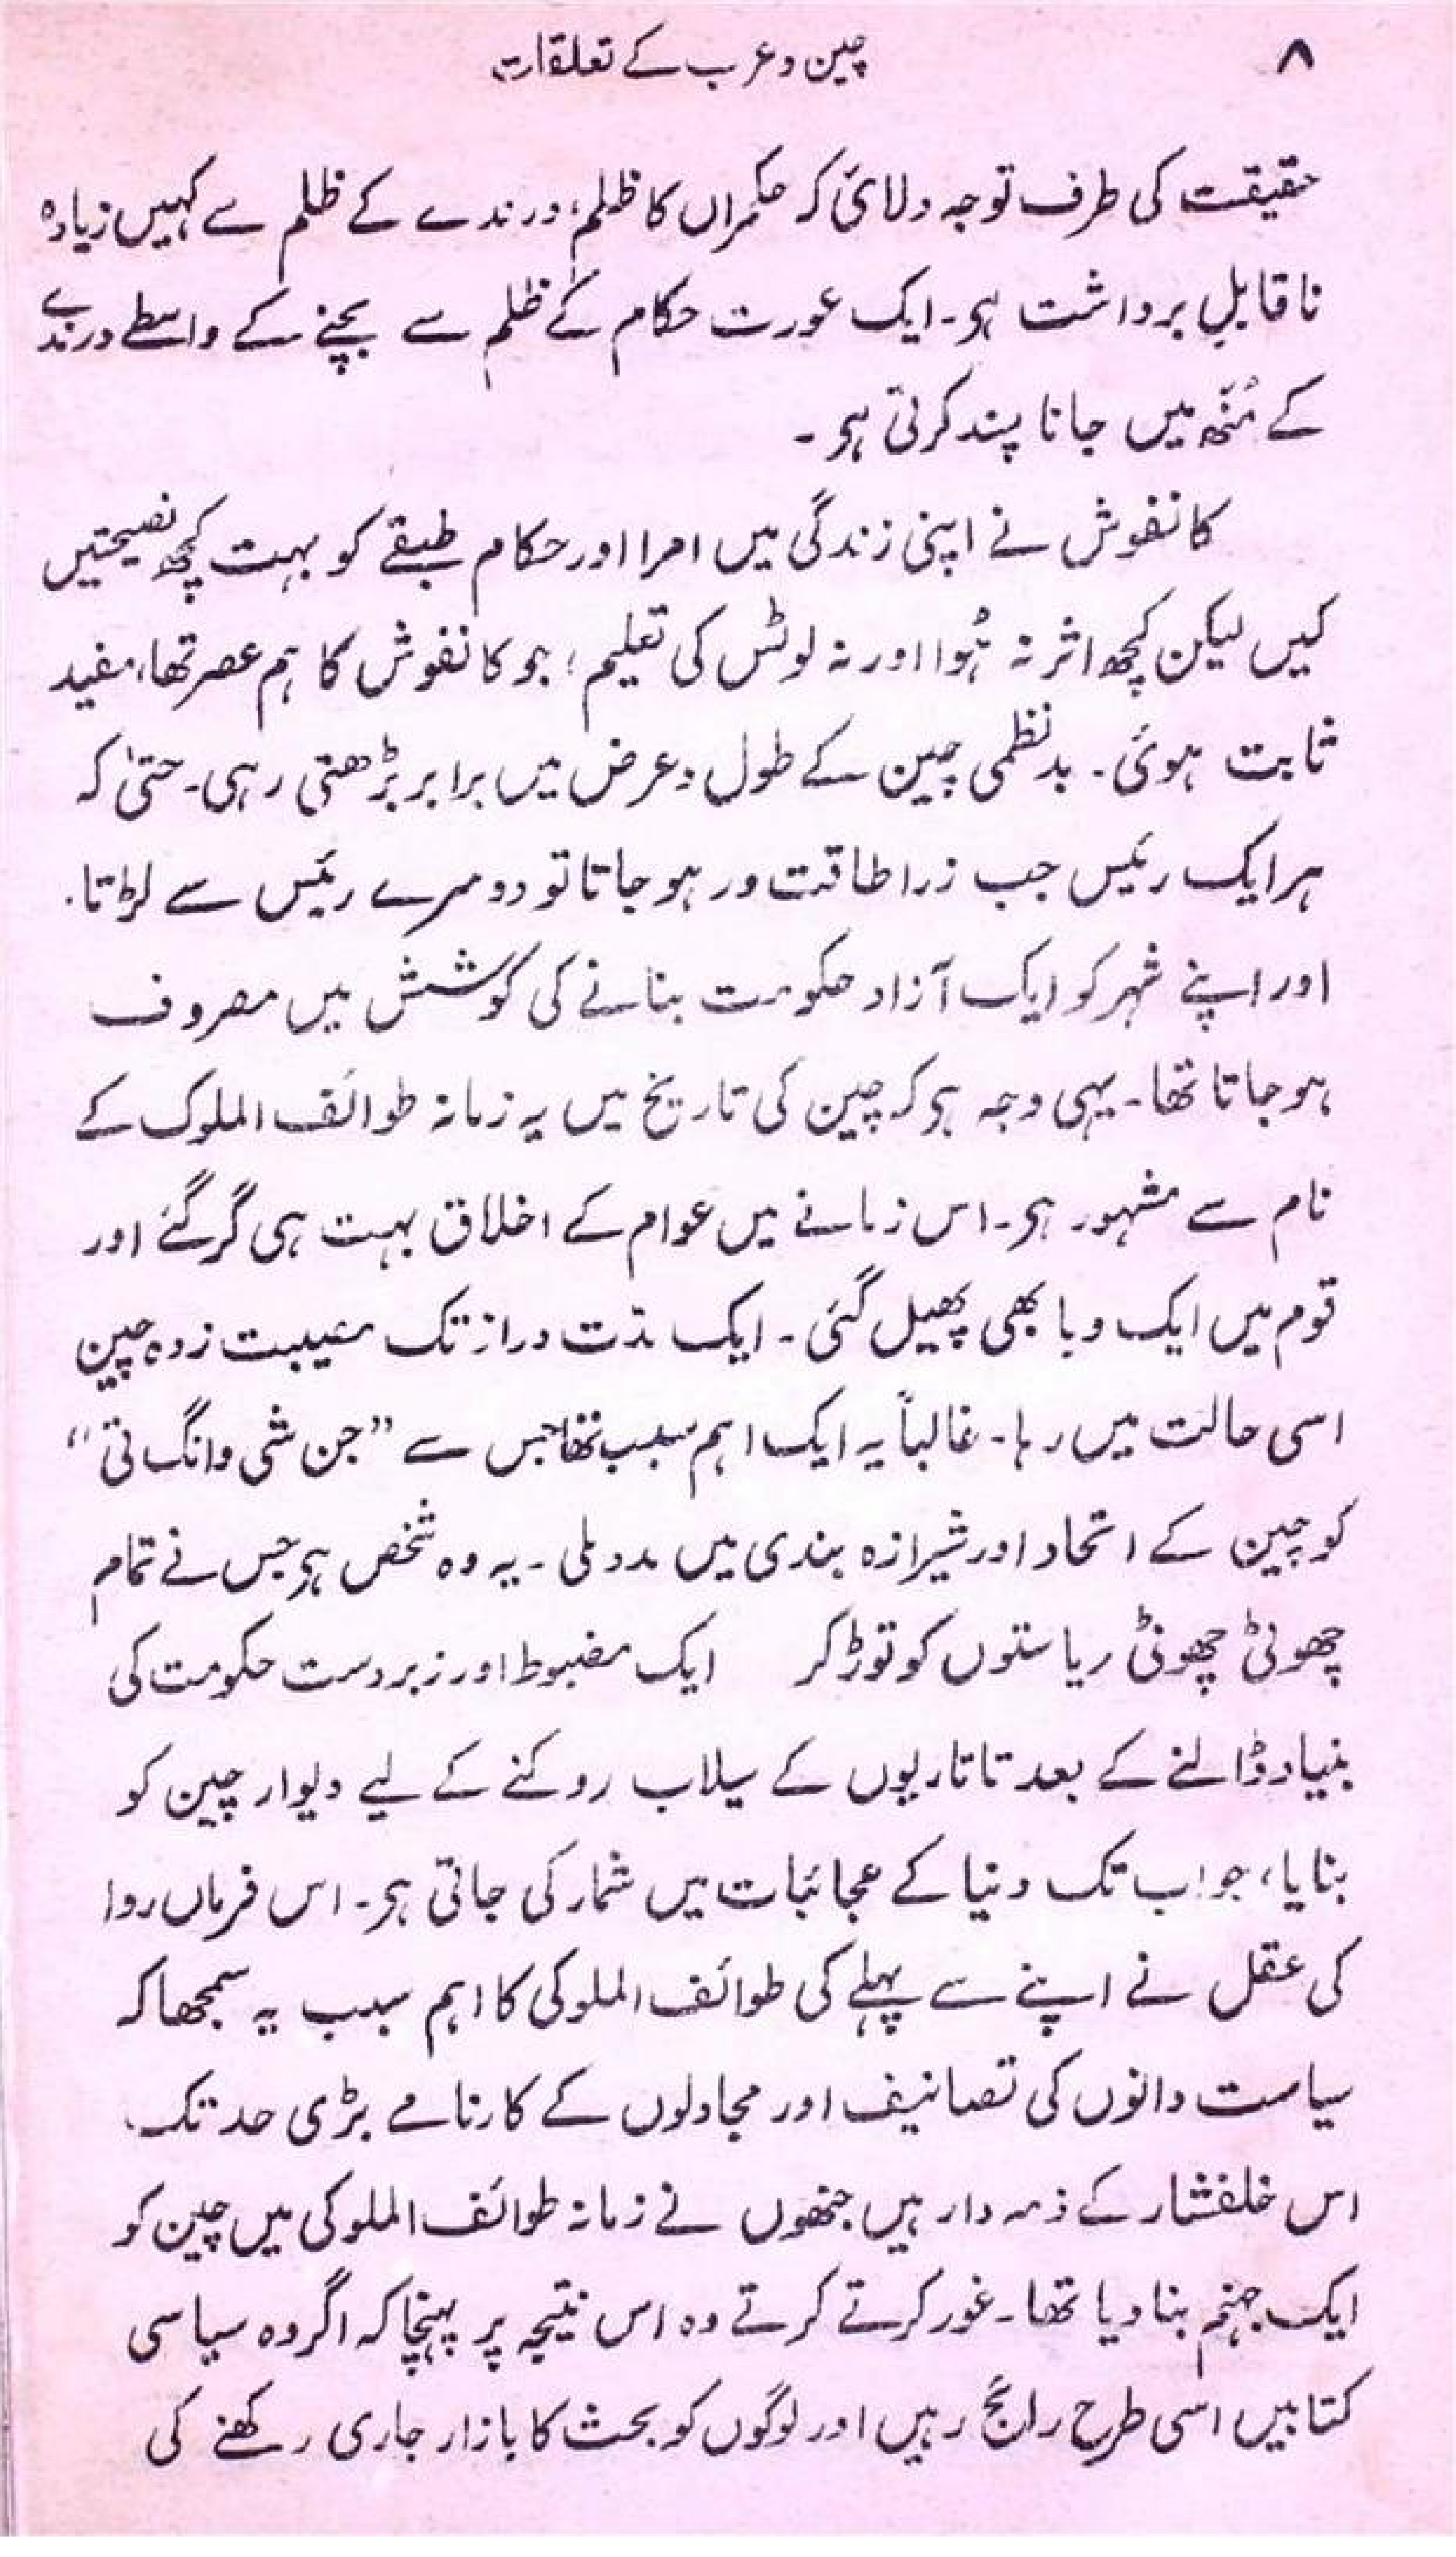 ۸
چین و عرب کے تعلقات
حقیقت کی طرف توجہ دلائی کہ حکمراں کا ظلم، درندے کے ظلم سے کہیں زیادہ
ناقابلِ برداشت ہی۔ ایک عورت حکام کے ظلم سے بچنے کے واسطے درندے
کے مُنھ میں جانا پسند کرتی ہی۔
کانفوش نے اپنی زندگی میں امرا اور حکام طبقے کو بہت کچھ نصیحتیں
کیں لیکن کچھ اثر نہ ہُوا اور نہ لوٹس کی تعلیم؛ جو کانفوش کا ہم عصر تھا، مفید
ثابت ہوئی۔ بدنظمی چین کے طول و عرض میں برابر بڑھتی رہی۔ حتیٰ کہ
ہر ایک رئیس جب زرا طاقت ور ہو جاتا تو دوسرے رئیس سے لڑتا۔
اور اپنے شہر کو ایک آزاد حکومت بنانے کی کوشش میں مصروف
ہو جاتا تھا۔ یہی وجہ ہی کہ چین کی تاریخ میں یہ زمانہ طوائف الملوک کے
نام سے مشہور ہی۔ اس زمانے میں عوام کے اخلاق بہت ہی گر گئے اور
قوم میں ایک وبا بھی پھیل گئی۔ ایک مدّت دراز تک مصیبت زدہ چین
اسی حالت میں رہا۔ غالباً یہ ایک اہم سبب تھا جس سے ”جن شی وانگ تی“
کو چین کے اتحاد اور شیرازہ بندی میں مدد ملی۔ یہ وہ شخص ہی جس نے تمام
چھوٹی چھوٹی ریاستوں کو توڑ کر ایک مضبوط اور زبردست حکومت کی
بنیاد ڈالنے کے بعد تاتاریوں کے سیلاب روکنے کے لیے دیوار چین کو
بنایا، جو اب تک دنیا کے عجائبات میں شمار کی جاتی ہی۔ اس فرماں روا
کی عقل نے اپنے سے پہلے کی طوائف الملوکی کا اہم سبب یہ سمجھا کہ
سیاست دانوں کی تصانیف اور مجادلوں کے کارنامے بڑی حد تک
اس خلفشار کے ذمہ دار ہیں جنھوں نے زمانہ طوائف الملوکی میں چین کو
ایک جہنم بنا دیا تھا۔ غور کرتے کرتے وہ اس نتیجہ پر پہنچا کہ اگر وہ سیاسی
کتابیں اسی طرح رائج رہیں اور لوگوں کو بحث کا بازار جاری رکھنے کی